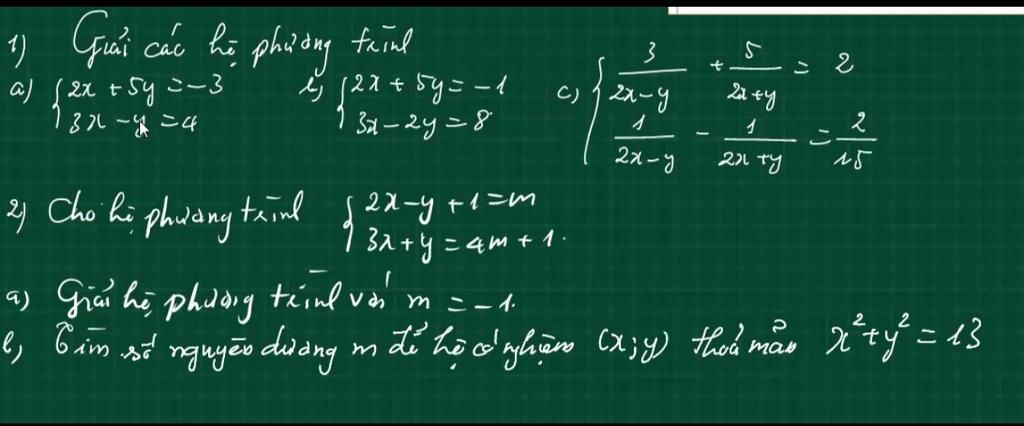 1) Giải các hệ phương trình
a) { 2x + 5y = -3
3x - y = 4
b) { 2x + 5y = -1
3x - 2y = 8
c) { 3/(2x-y) + 5/(2x+y) = 2
1/(2x-y) - 1/(2x+y) = 2/15
2) Cho hệ phương trình { 2x - y + 1 = m
3x + y = 4m + 1.
a) Giải hệ phương trình với m = -1.
b) Tìm số nguyên dương m để hệ có nghiệm (x;y) thoả mãn x² + y² = 13